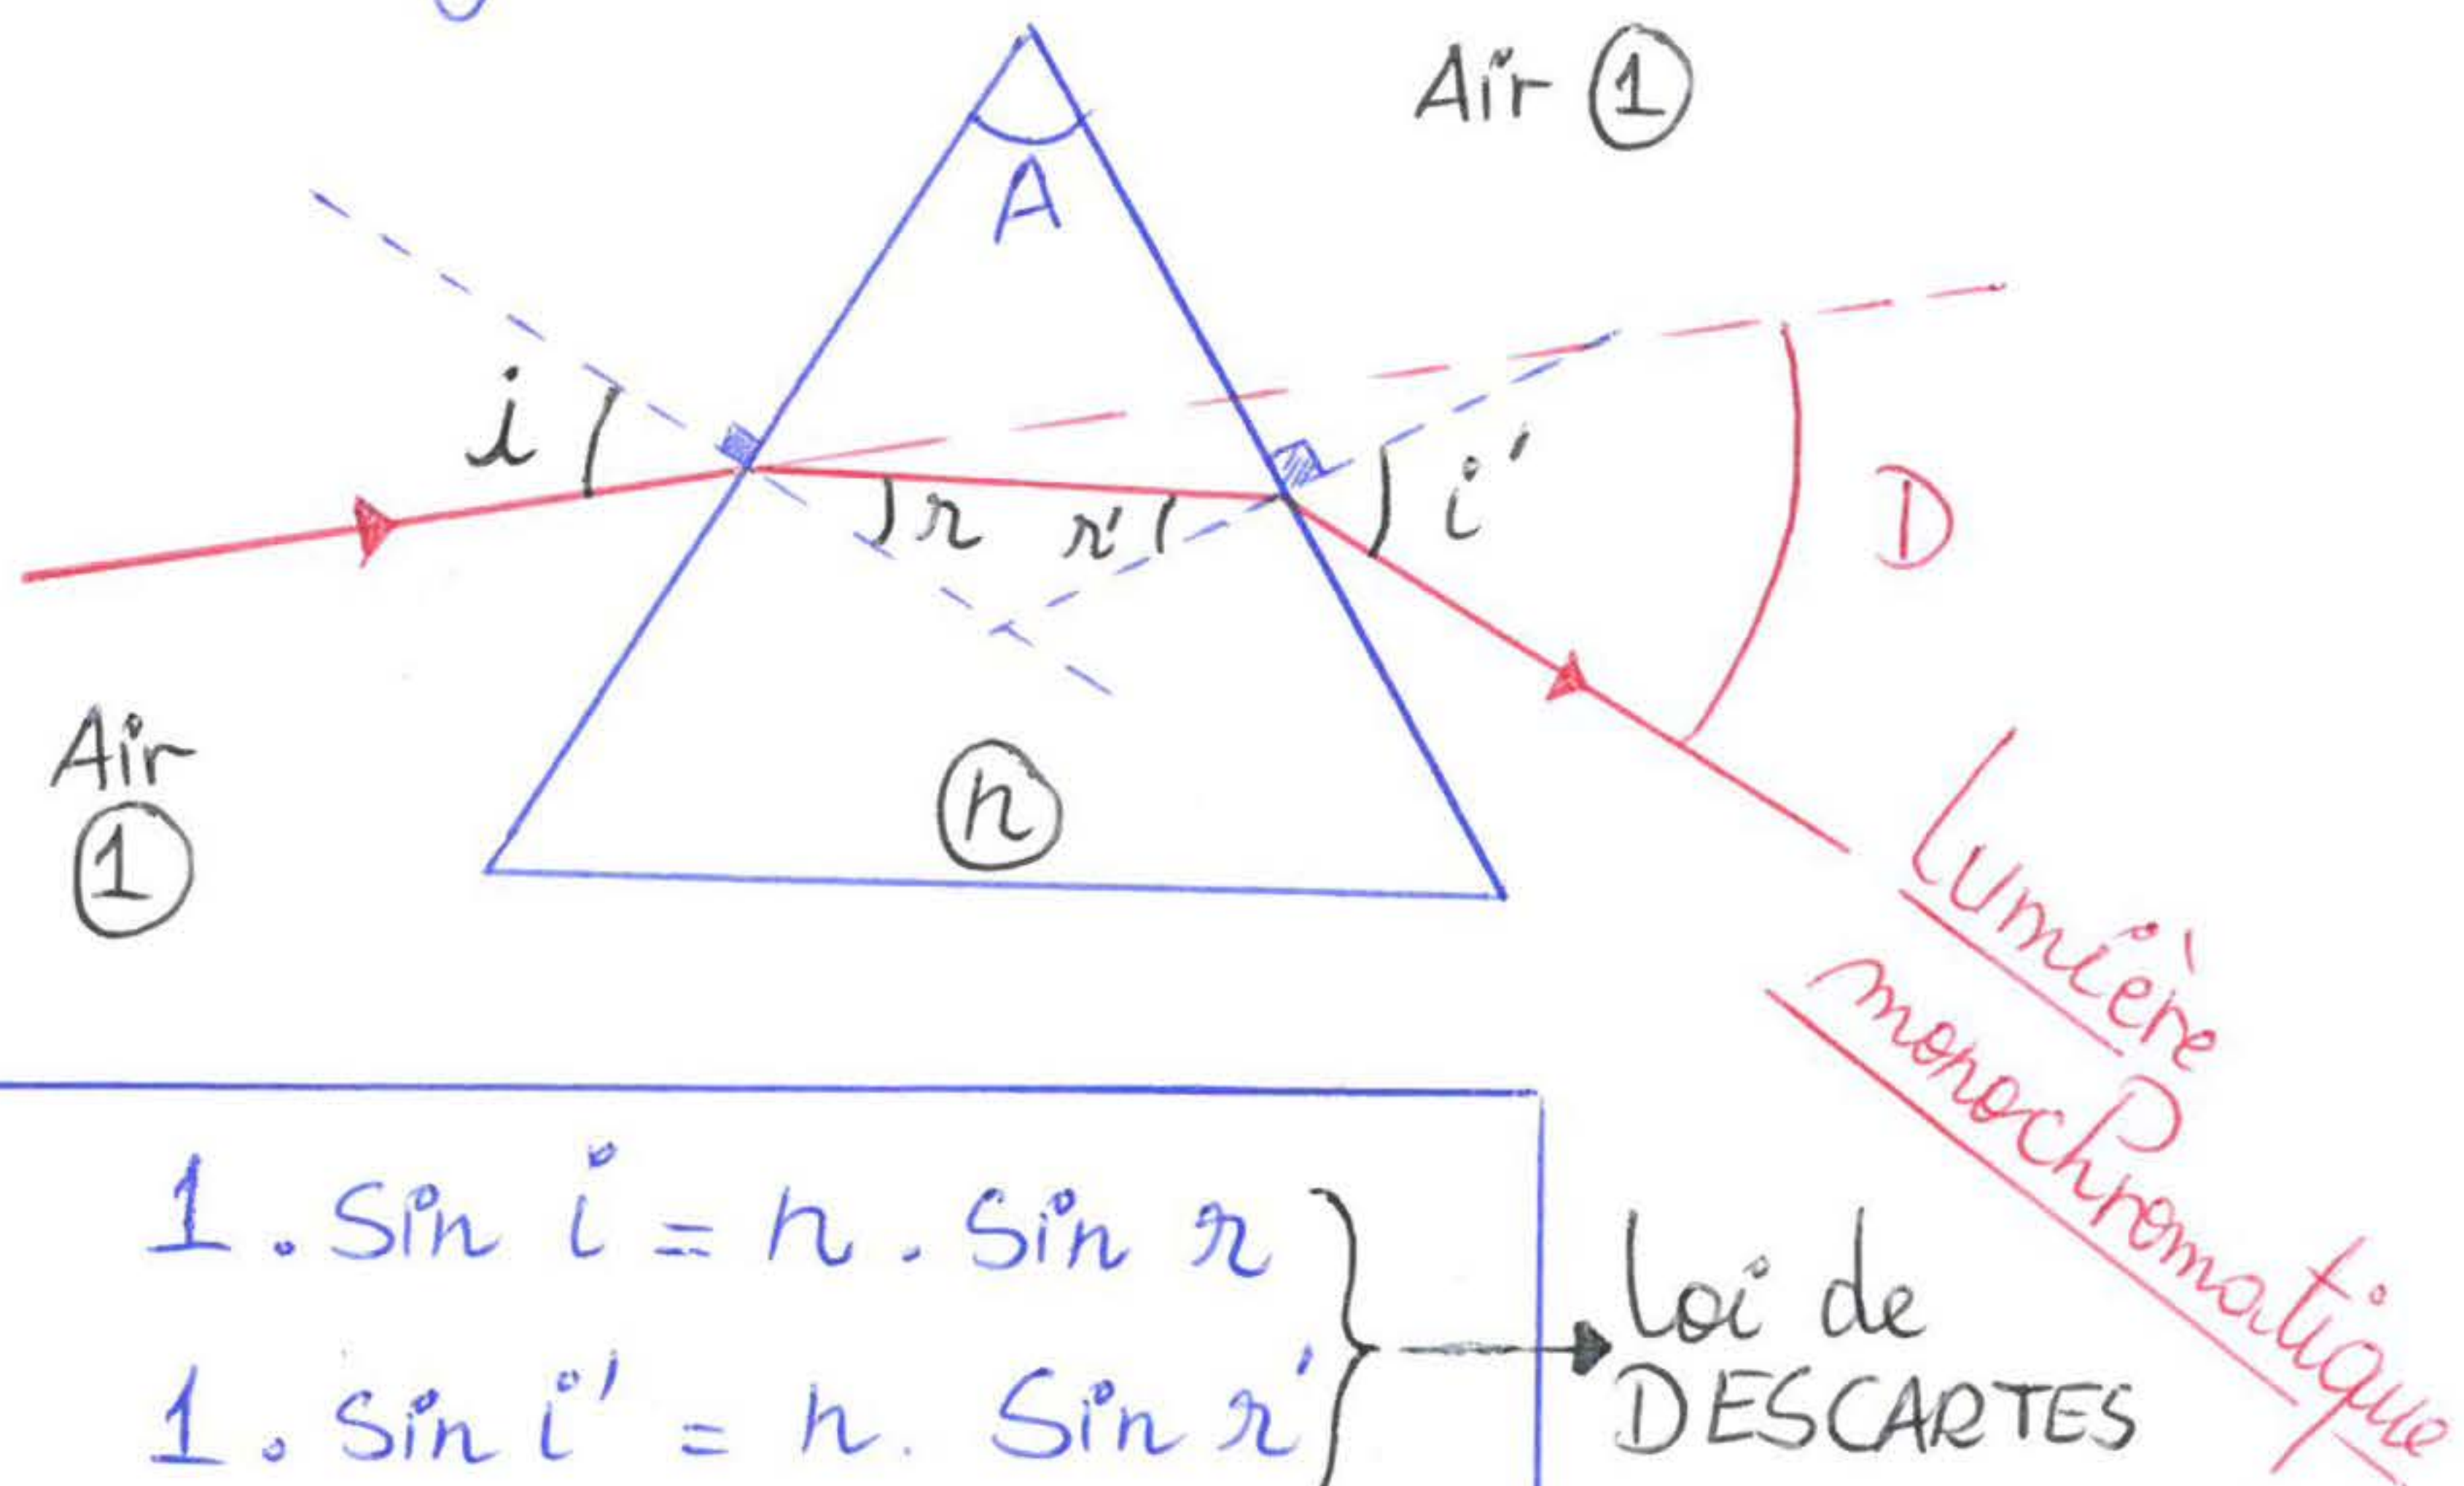 Air ①
A
i
i'
r
r'
D
Air
①
n
Lumière
monochromatique
1 . Sin i = n . Sin r
1 . Sin i' = n . Sin r'
Loi de
DESCARTES